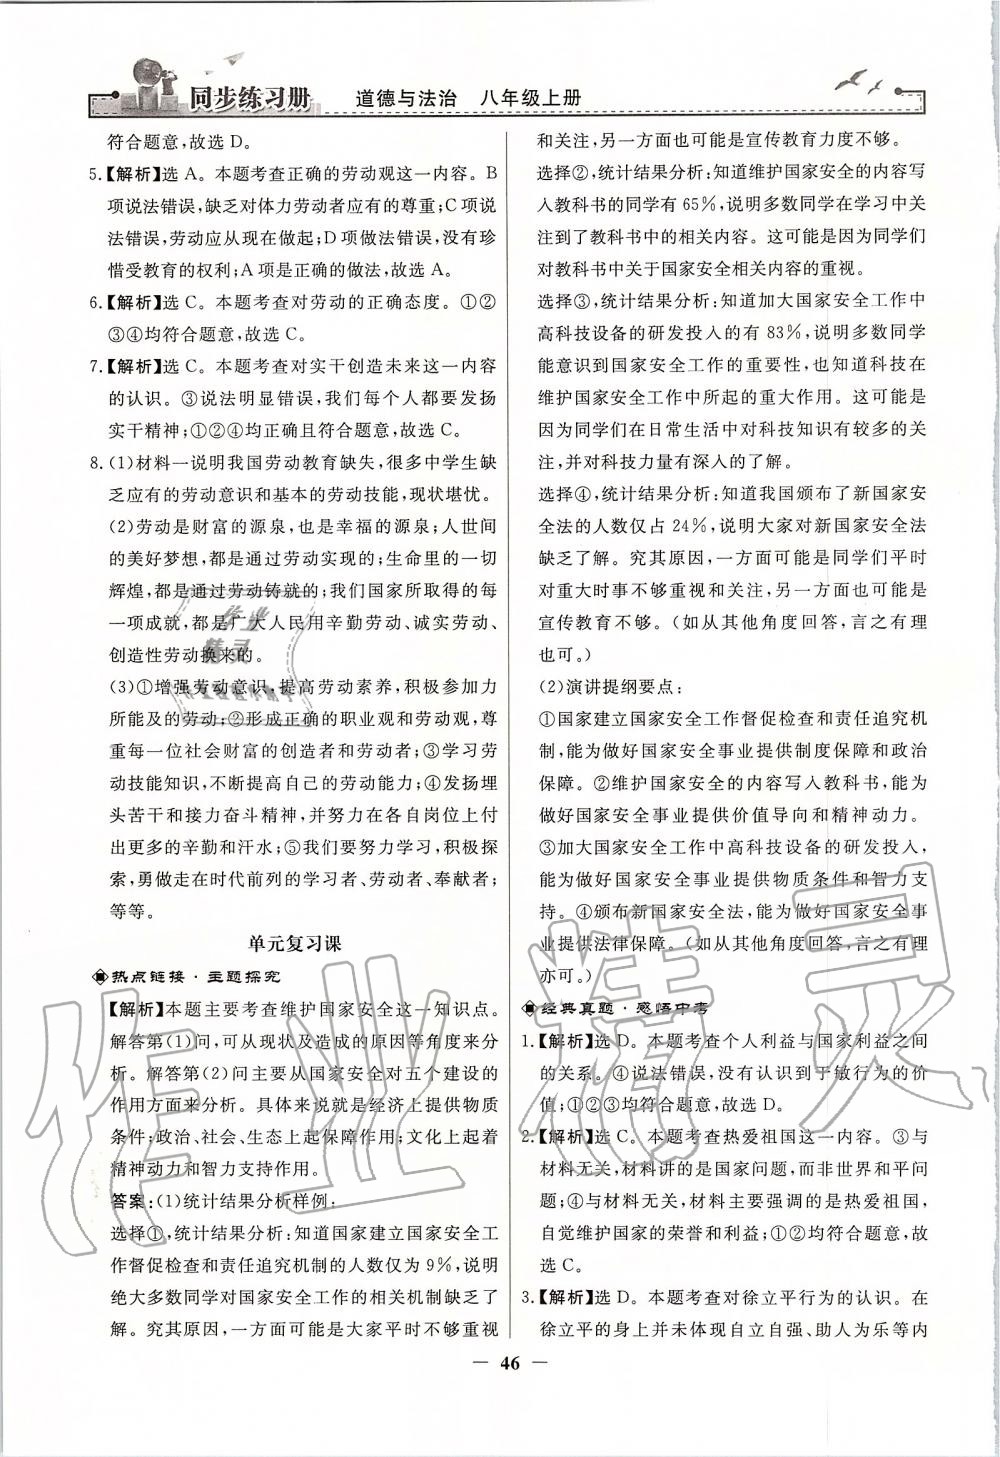 同步练习册 道德与法治 八年级上册
符合题意,故选 D。
5.【解析】选 A。本题考查正确的劳动观这一内容。B
项说法错误,缺乏对体力劳动者应有的尊重;C 项说
法错误,劳动应从现在做起;D 项做法错误,没有珍
惜受教育的权利;A 项是正确的做法,故选 A。
6.【解析】选 C。本题考查对劳动的正确态度。①②
③④均符合题意,故选 C。
7.【解析】选 C。本题考查对实干创造未来这一内容
的认识。③说法明显错误,我们每个人都要发扬
实干精神;①②④均正确且符合题意,故选 C。
8.(1)材料一说明我国劳动教育缺失,很多中学生缺
乏应有的劳动意识和基本的劳动技能,现状堪忧。
(2)劳动是财富的源泉,也是幸福的源泉;人世间
的美好梦想,都是通过劳动实现的;生命里的一切
辉煌,都是通过劳动铸就的;我们国家所取得的每
一项成就,都是广大人民用辛勤劳动、诚实劳动、
创造性劳动换来的。
(3)①增强劳动意识,提高劳动素养,积极参加力
所能及的劳动;②形成正确的职业观和劳动观,尊
重每一位社会财富的创造者和劳动者;③学习劳
动技能知识,不断提高自己的劳动能力;④发扬埋
头苦干和接力奋斗精神,并努力在各自岗位上付
出更多的辛勤和汗水;⑤我们要努力学习,积极探
索,勇做走在时代前列的学习者、劳动者、奉献者;
等等。
单元复习课
热点链接·主题探究
【解析】本题主要考查维护国家安全这一知识点。
解答第(1)问,可从现状及造成的原因等角度来分
析。解答第(2)问主要从国家安全对五个建设的
作用方面来分析。具体来说就是经济上提供物质
条件;政治、社会、生态上起保障作用;文化上起着
精神动力和智力支持作用。
答案:(1)统计结果分析样例:
选择①,统计结果分析:知道国家建立国家安全工
作督促检查和责任追究机制的人数仅为 9%,说明
绝大多数同学对国家安全工作的相关机制缺乏了
解。究其原因,一方面可能是大家平时不够重视
和关注,另一方面也可能是宣传教育力度不够。
选择②,统计结果分析:知道维护国家安全的内容写
入教科书的同学有 65%,说明多数同学在学习中关
注到了教科书中的相关内容。这可能是因为同学们
对教科书中关于国家安全相关内容的重视。
选择③,统计结果分析:知道加大国家安全工作中
高科技设备的研发投入的有 83%,说明多数同学
能意识到国家安全工作的重要性,也知道科技在
维护国家安全工作中所起的重大作用。这可能是
因为同学们在日常生活中对科技知识有较多的关
注,并对科技力量有深入的了解。
选择④,统计结果分析:知道我国颁布了新国家安
全法的人数仅占 24%,说明大家对新国家安全法
缺乏了解。究其原因,一方面可能是同学们平时
对重大时事不够重视和关注,另一方面也可能是
宣传教育不够。(如从其他角度回答,言之有理
也可。)
(2)演讲提纲要点:
①国家建立国家安全工作督促检查和责任追究机
制,能为做好国家安全事业提供制度保障和政治
保障。②维护国家安全的内容写入教科书,能为
做好国家安全事业提供价值导向和精神动力。
③加大国家安全工作中高科技设备的研发投入,
能为做好国家安全事业提供物质条件和智力支
持。④颁布新国家安全法,能为做好国家安全事
业提供法律保障。(如从其他角度回答,言之有理
亦可。)
经典真题·感悟中考
1.【解析】选 D。本题考查个人利益与国家利益之间
的关系。④说法错误,没有认识到于敏行为的价
值;①②③均符合题意,故选 D。
2.【解析】选 C。本题考查热爱祖国这一内容。③与
材料无关,材料讲的是国家问题,而非世界和平问
题;④与材料无关,材料主要强调的是热爱祖国,
自觉维护国家的荣誉和利益;①②均符合题意,故
选 C。
3.【解析】选 D。本题考查对徐立平行为的认识。在
徐立平的身上并未体现自立自强、助人为乐等内
— 46 —
作业精灵